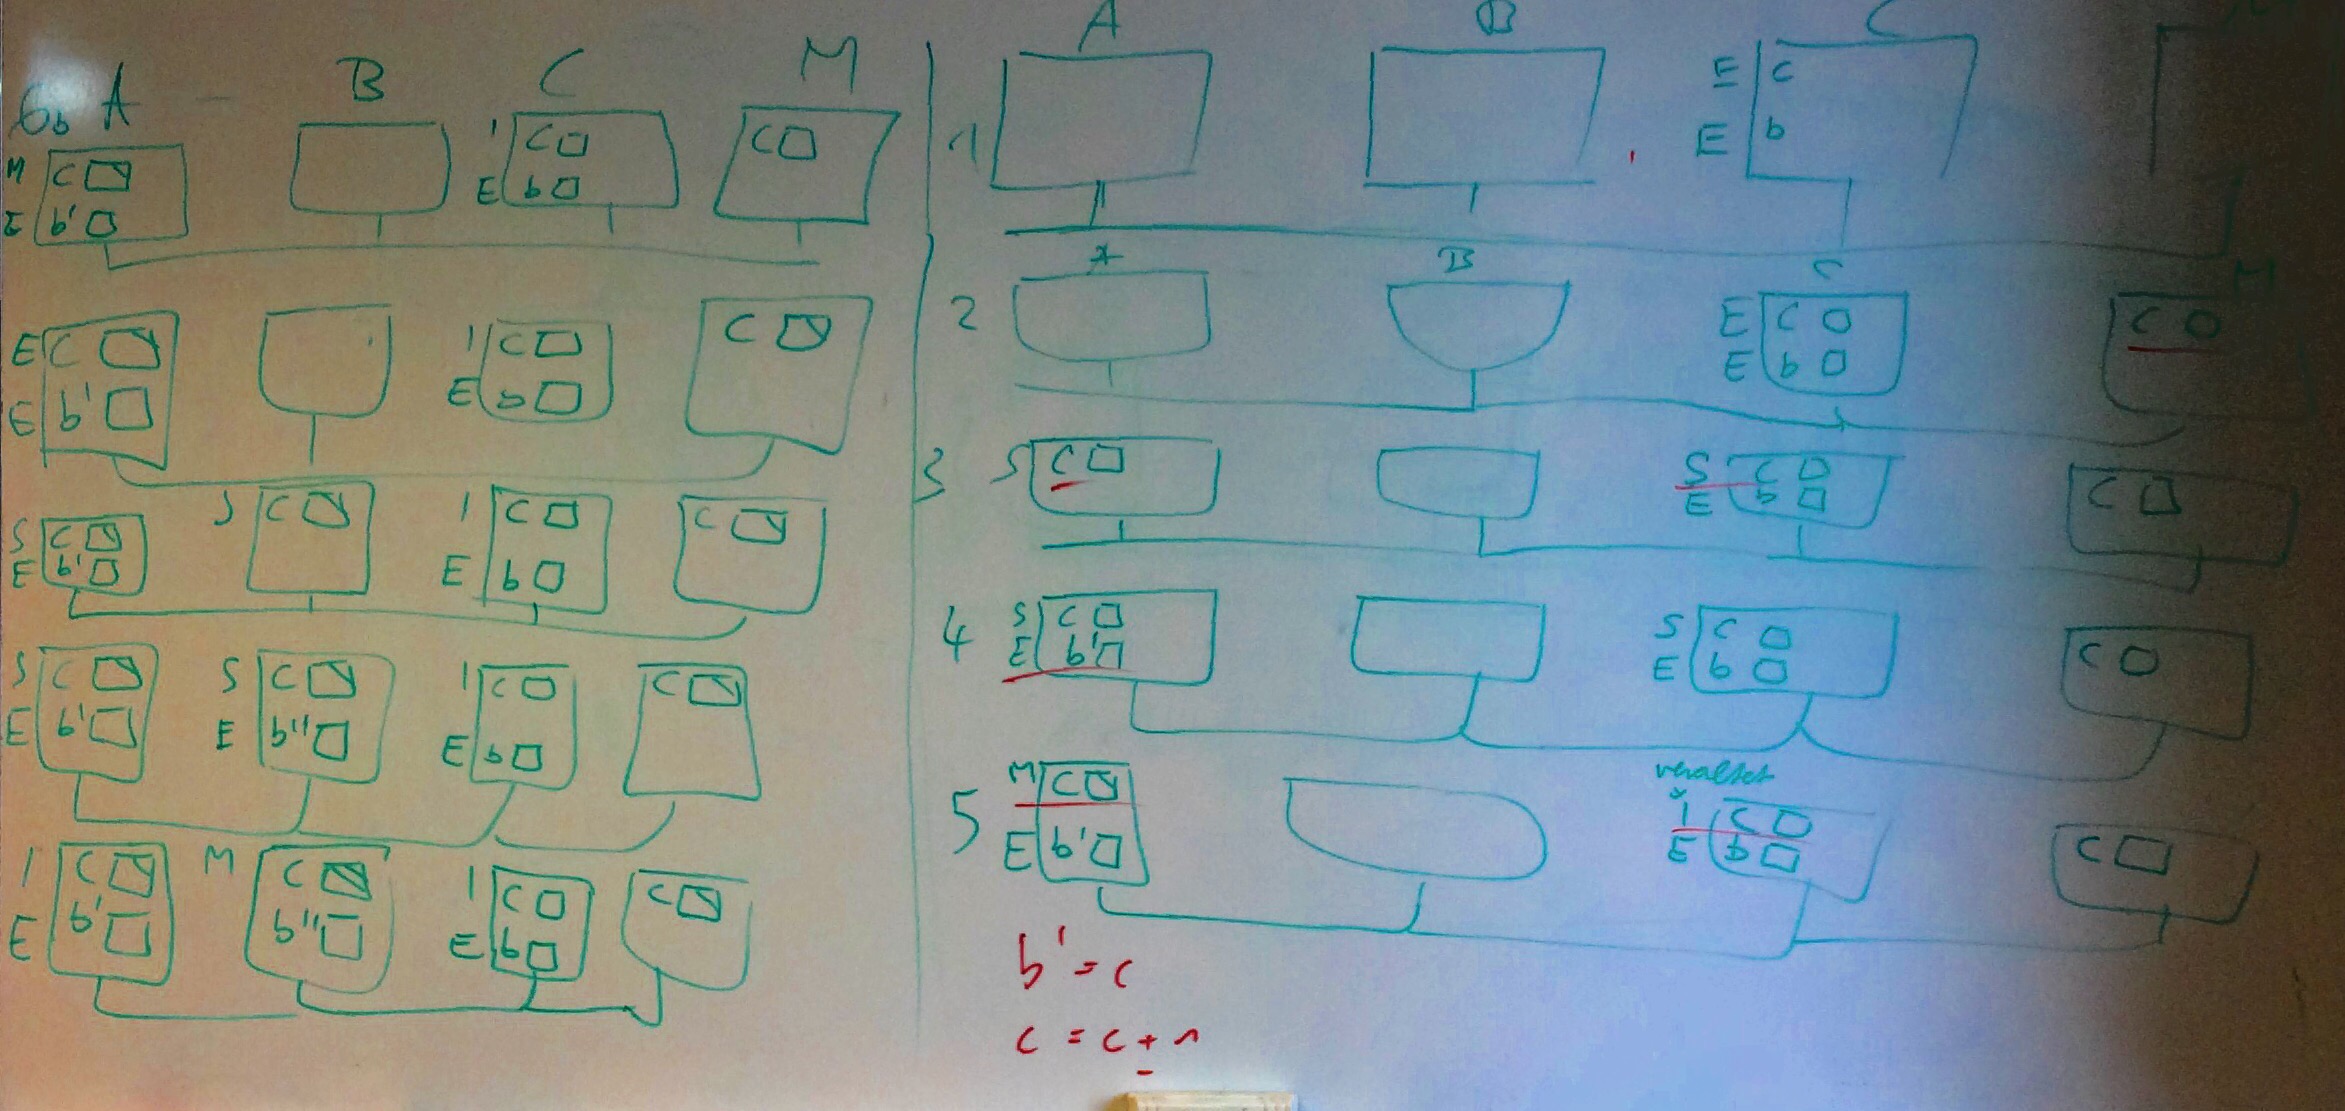 6b A B C M
M C
E b'
I C
E b
C
E C
E b'
I C
E b
C
S C
E b'
S C
I C
E b
C
S C
E b'
S C
E b''
I C
E b
C
I C
E b'
M C
b''
I C
E b
C
A B C
1
E C
E b
A B C M
2
E C
E b
C
3
S C
S C
E b
C
4
S C
E b'
S C
E b
C
5
M C
E b'
veraltet
I C
E b
C
b' = c
c = c + 1